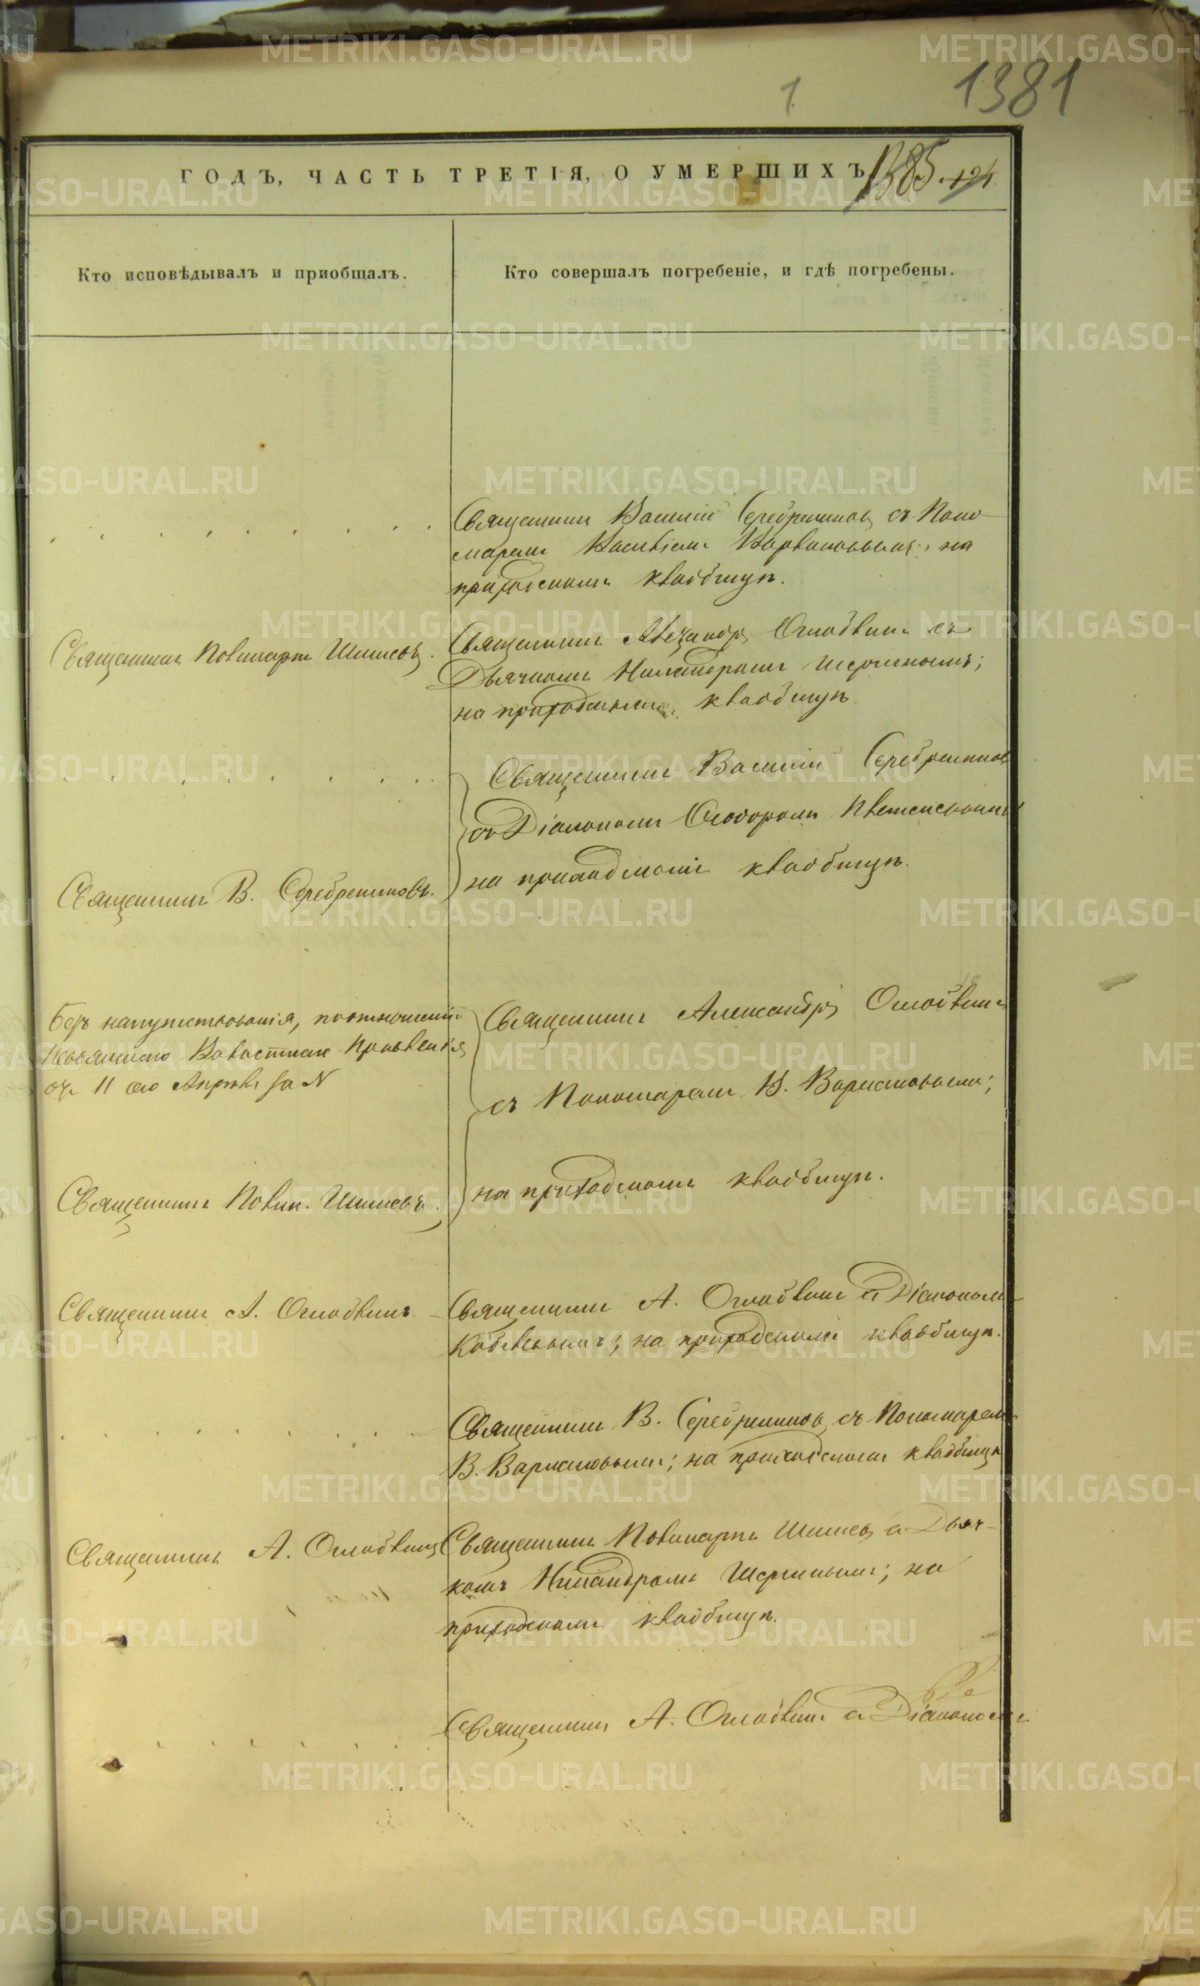 1
1381
ГОДЪ, ЧАСТЬ ТРЕТІЯ, О УМЕРШИХЪ
1385. 124.
Кто исповѣдывалъ и пріобщалъ.
Кто совершалъ погребеніе, и гдѣ погребены.
Священникъ Василій Серебренниковъ съ Поно-
маремъ на
приходскомъ кладбищѣ.
Священникъ Шишевъ.
Священникъ Александръ Оглоблинъ съ
Дьячкомъ Никандромъ
на приходскомъ кладбищѣ.
Священникъ Василій Серебренниковъ
съ Діакономъ Ѳеодоромъ
на приходскомъ кладбищѣ.
Священникъ В. Серебренниковъ.
Безъ напутствованія, по отношенію
Правленія
отъ 11 го за N
Священникъ Александръ Оглоблинъ
съ Пономаремъ В.
на приходскомъ кладбищѣ.
Священникъ Шишевъ.
Священникъ А. Оглоблинъ
Священникъ А. Оглоблинъ съ Діакономъ
на приходскомъ кладбищѣ.
Священникъ В. Серебренниковъ съ Пономаремъ
В. на приходскомъ кладбищѣ
Священникъ А. Оглоблинъ
Священникъ Шишевъ съ Дьяч-
комъ Никандромъ на
приходскомъ кладбищѣ.
Священникъ А. Оглоблинъ съ Діакономъ
METRIKI.GASO-URAL.RU